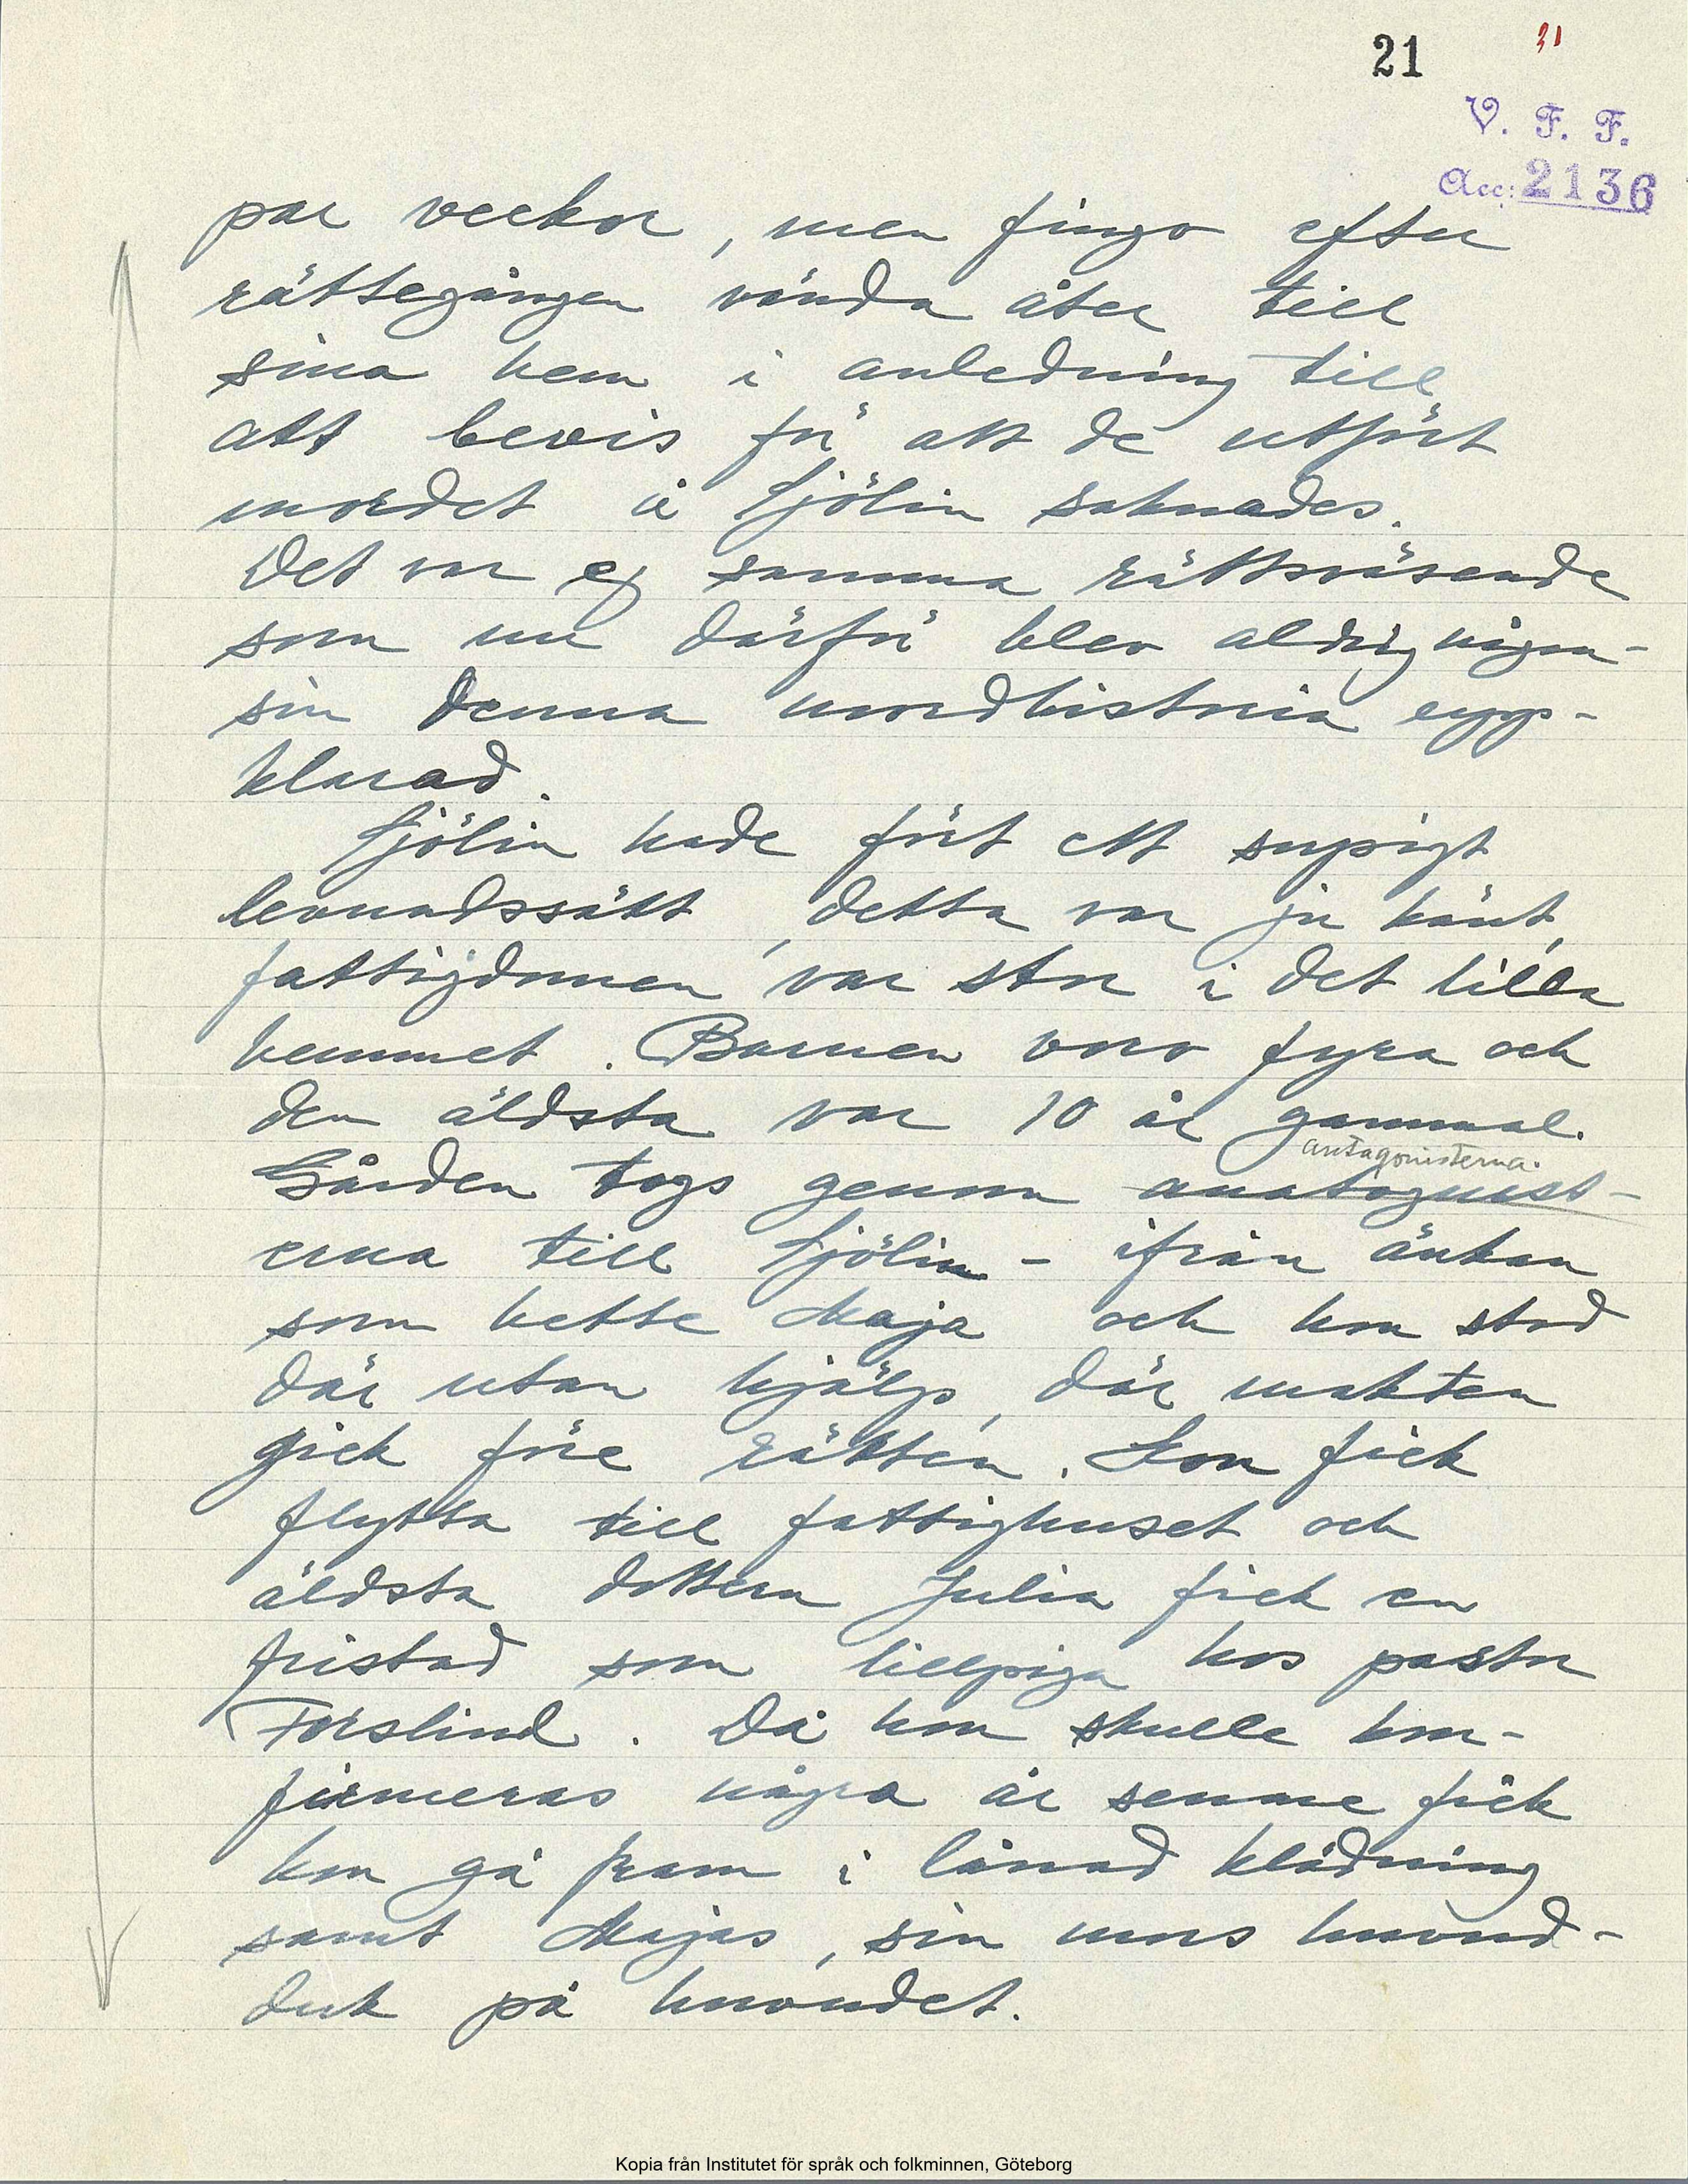 21
31
V. F. F.
Acc: 2136
par veckor, men fingo efter
rättegången vända åter till
sina hem i anledning till
att bevis för att de utfört
mordet å Sjölin saknades.
Det var ej samma rättsväsende
som nu därför blev aldrig någon-
sin denna mordhistoria upp-
klarad.
Sjölin hade fört ett supigt
levnadssätt, detta var ju känt,
fattigdomen var stor i det lilla
hemmet. Barnen voro fyra och
den äldsta var 10 år gammal.
antagonisterna.
Gården togs genom anatogonist-
erna till Sjölin - ifrån änkan
som hette Maja och hon stod
där utan hjälp, där makten
gick före rätten. Hon fick
flytta till fattighuset och
äldsta dottern Julia fick en
fristad som lillpiga hos pastor
Forslind. Då hon skulle kon-
firmeras några år senare fick
hon gå fram i lånad klädning
samt Majas, sin mors huvud-
duk på huvudet.
Kopia från Institutet för språk och folkminnen, Göteborg